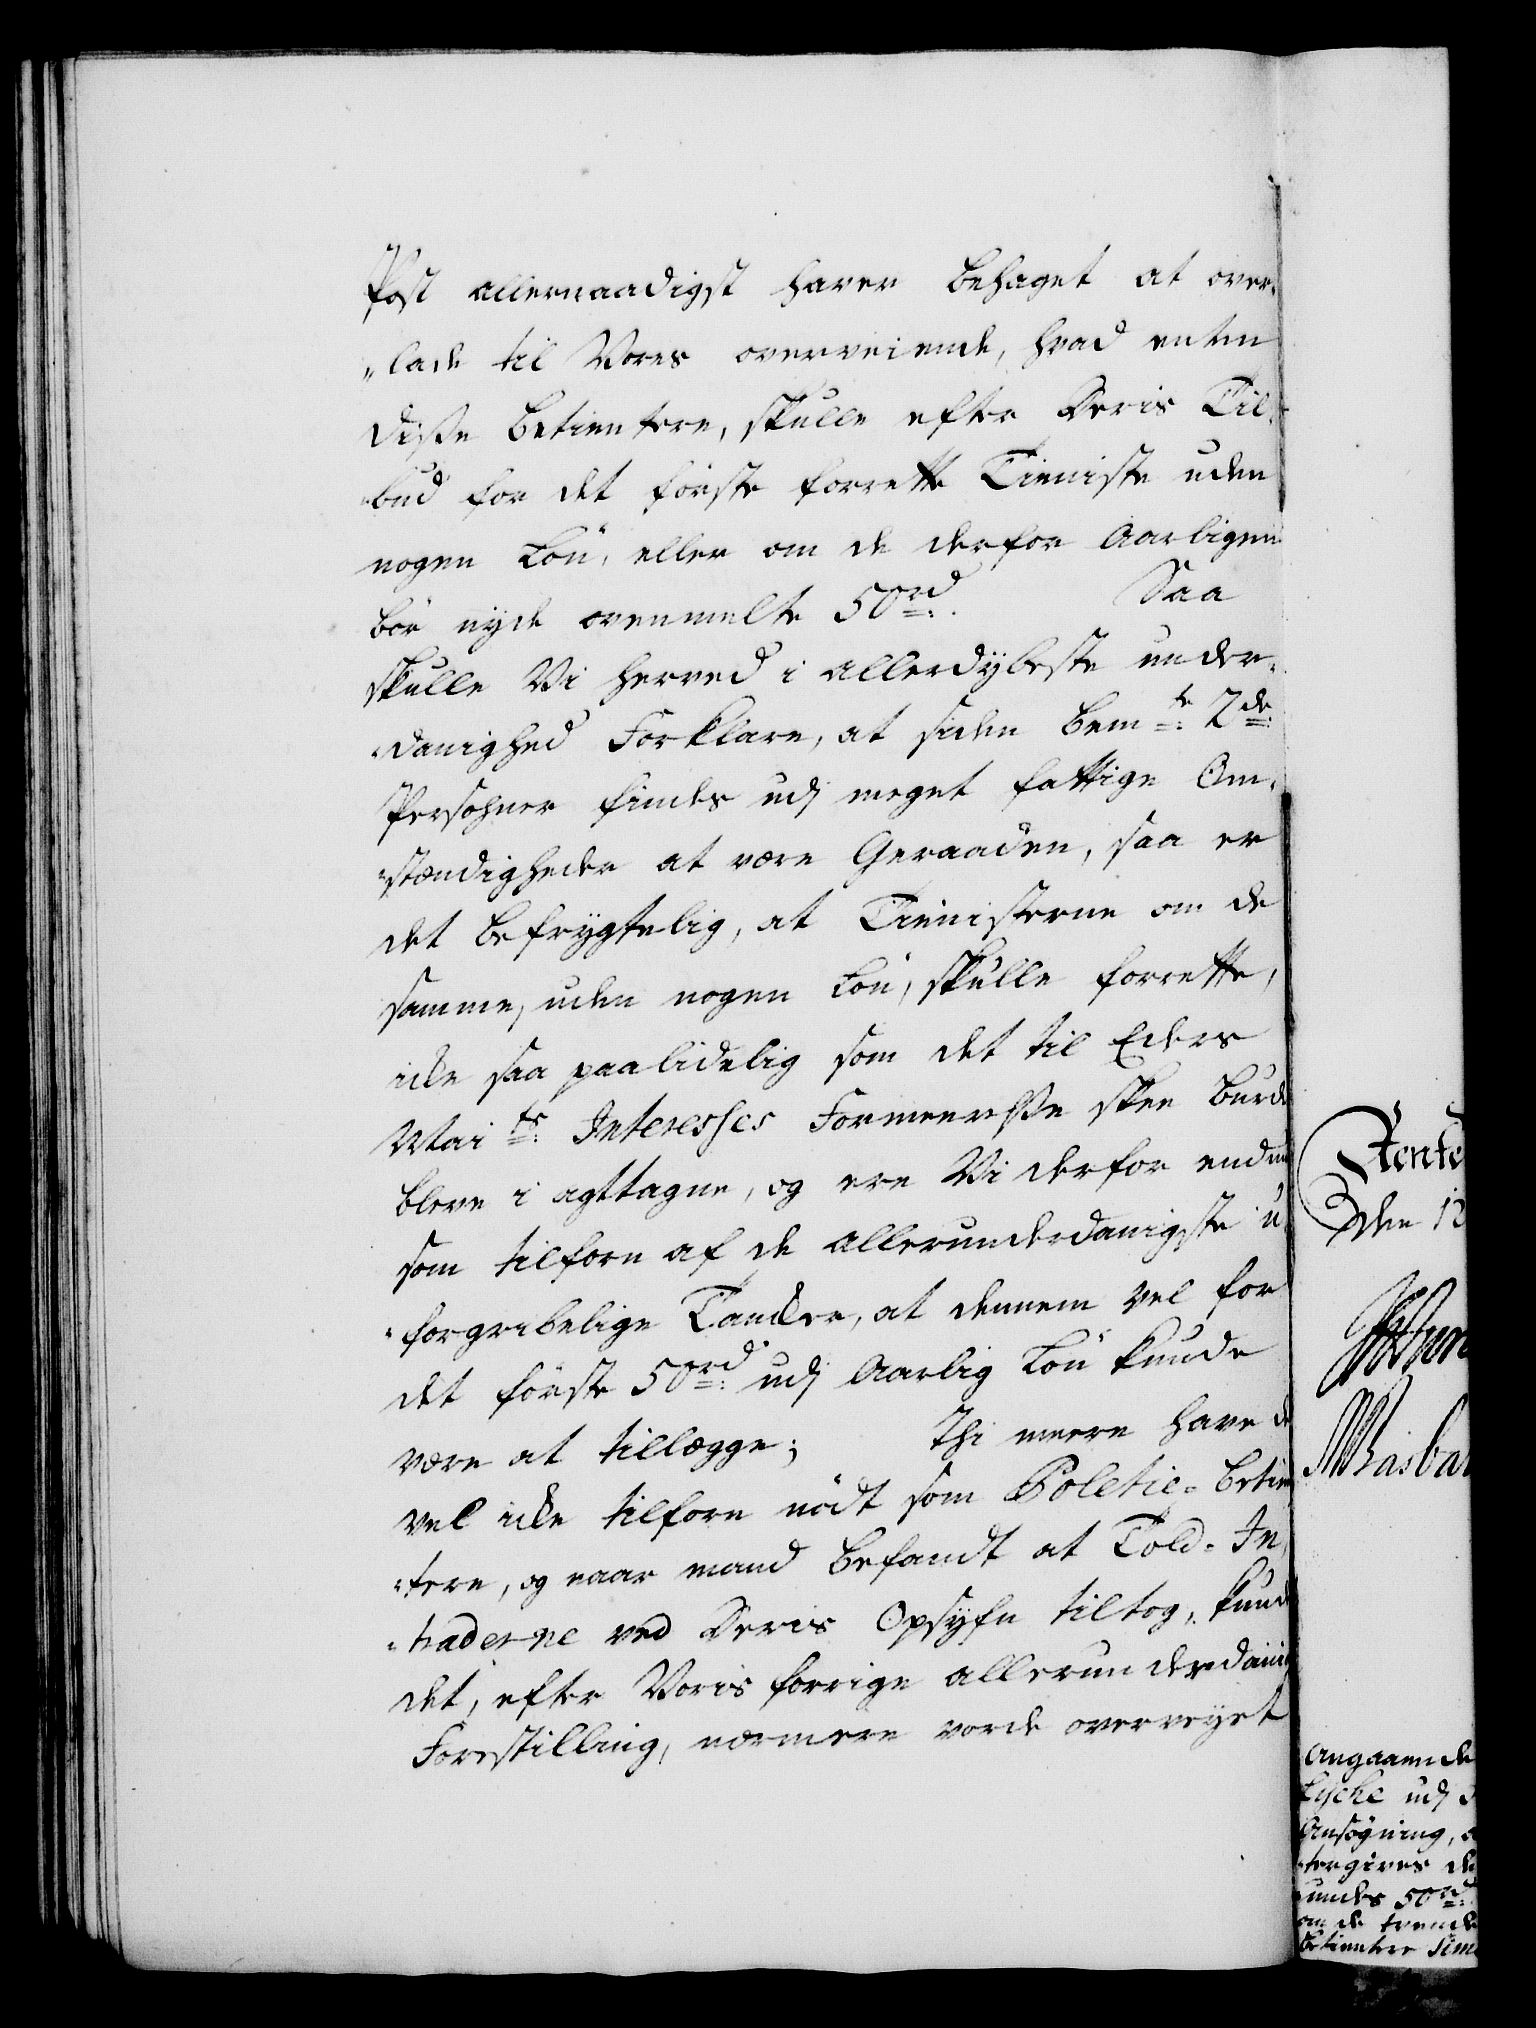 Post allernaadigst haver behaget at over„
„lade til Vores overveiende, hvad enten
disse betientere, skulle efter Deris Til„
„bud for det förste forrette Tieniste uden
nogen Lön, eller om de derfor Aarligen
bör nyde ovenmelte 50 rd. Saa
skulle Vi herved i allerdybeste under„
„danighed Forklare, at siden bem:te 2de
Persohner findes udj meget fattige Om„
„stændigheder at være Geraaden, saa er
det befrygtelig, at Tienisterne om de
samme, uden nogen Lön, skulle forrette,
icke saa paalidelig som det til Eders
Mai:ts Interesses Formeerelse skee burde
bleve i agttagne, og ere Vi derfor endnu
som tilforn af de allerunderdanigste u„
„forgribelige Tancker, at dennem vel for
det förste 50 rd: udj Aarlig Lön kunde
være at tillægge; Thi meere have de
vel icke tilforn nödt som Poletie-betien
„tere, og naar mand befandt at Told-In„
„traderne ved Deris Opsyhn tiltog, kunde
det, efter Voris forrige allerunderdanig
Forestilling, nærmere vorde overveyet
Rente
Den 12
Angaaende
Lycke udj
Ansögning,
„tergives de
undes 50 rd:
om de tvende
betientere